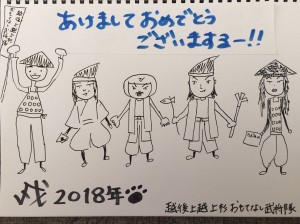 あけましておめでとう
ございまするー!!
戌 2018年
越後上越上杉おもてなし武将隊